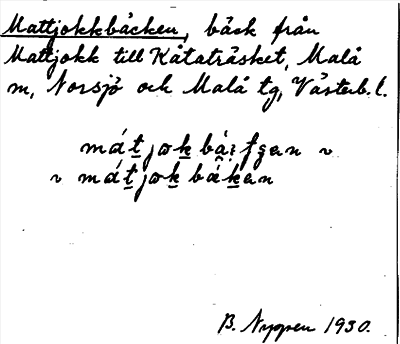 Mattjokkbäcken, bäck från
Mattjokk till Kåtaträsket, Malå
m, Norsjö och Malå tg, Västerb. l.
mát̲jok̲bä
mát̲jok̲bák̲an
B. Nyppen 1930.